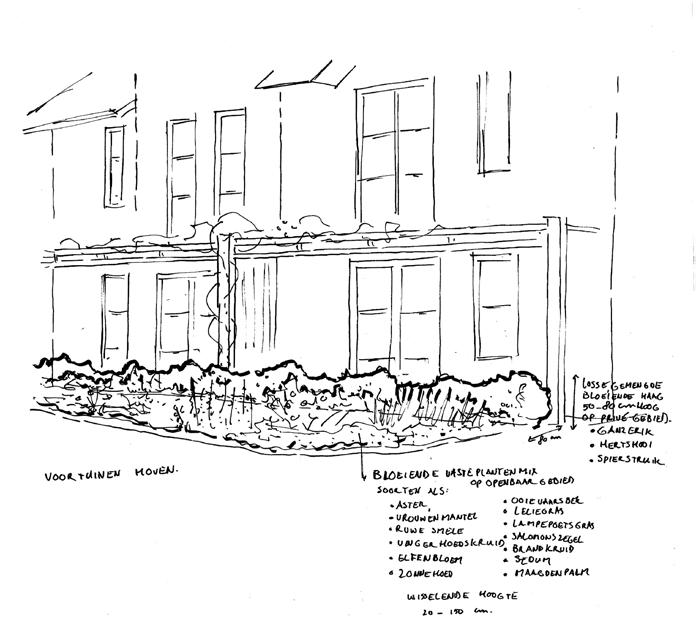 LOSSE GEMENGDE
BLOEIENDE HAAG
50-80 cm HOOG
OP PRIVE GEBIED.
• GANZERIK
• HERTSHOOI
• SPIERSTRUIK
± 80 cm
VOORTUINEN HOVEN.
BLOEIENDE VASTE PLANTEN MIX
OP OPENBAAR GEBIED
SOORTEN ALS:
• ASTER,
• VROUWENMANTEL
• RUWE SMELE
• VINGERHOEDSKRUID
• ELFENBLOEM
• ZONNEHOED
• OOIEVAARSBEK
• LELIEGRAS
• LAMPEPOETSGRAS
• SALOMONSZEGEL
• BRANDKRUID
• SEDUM
• MAAGDENPALM
WISSELENDE HOOGTE
20 - 150 cm.